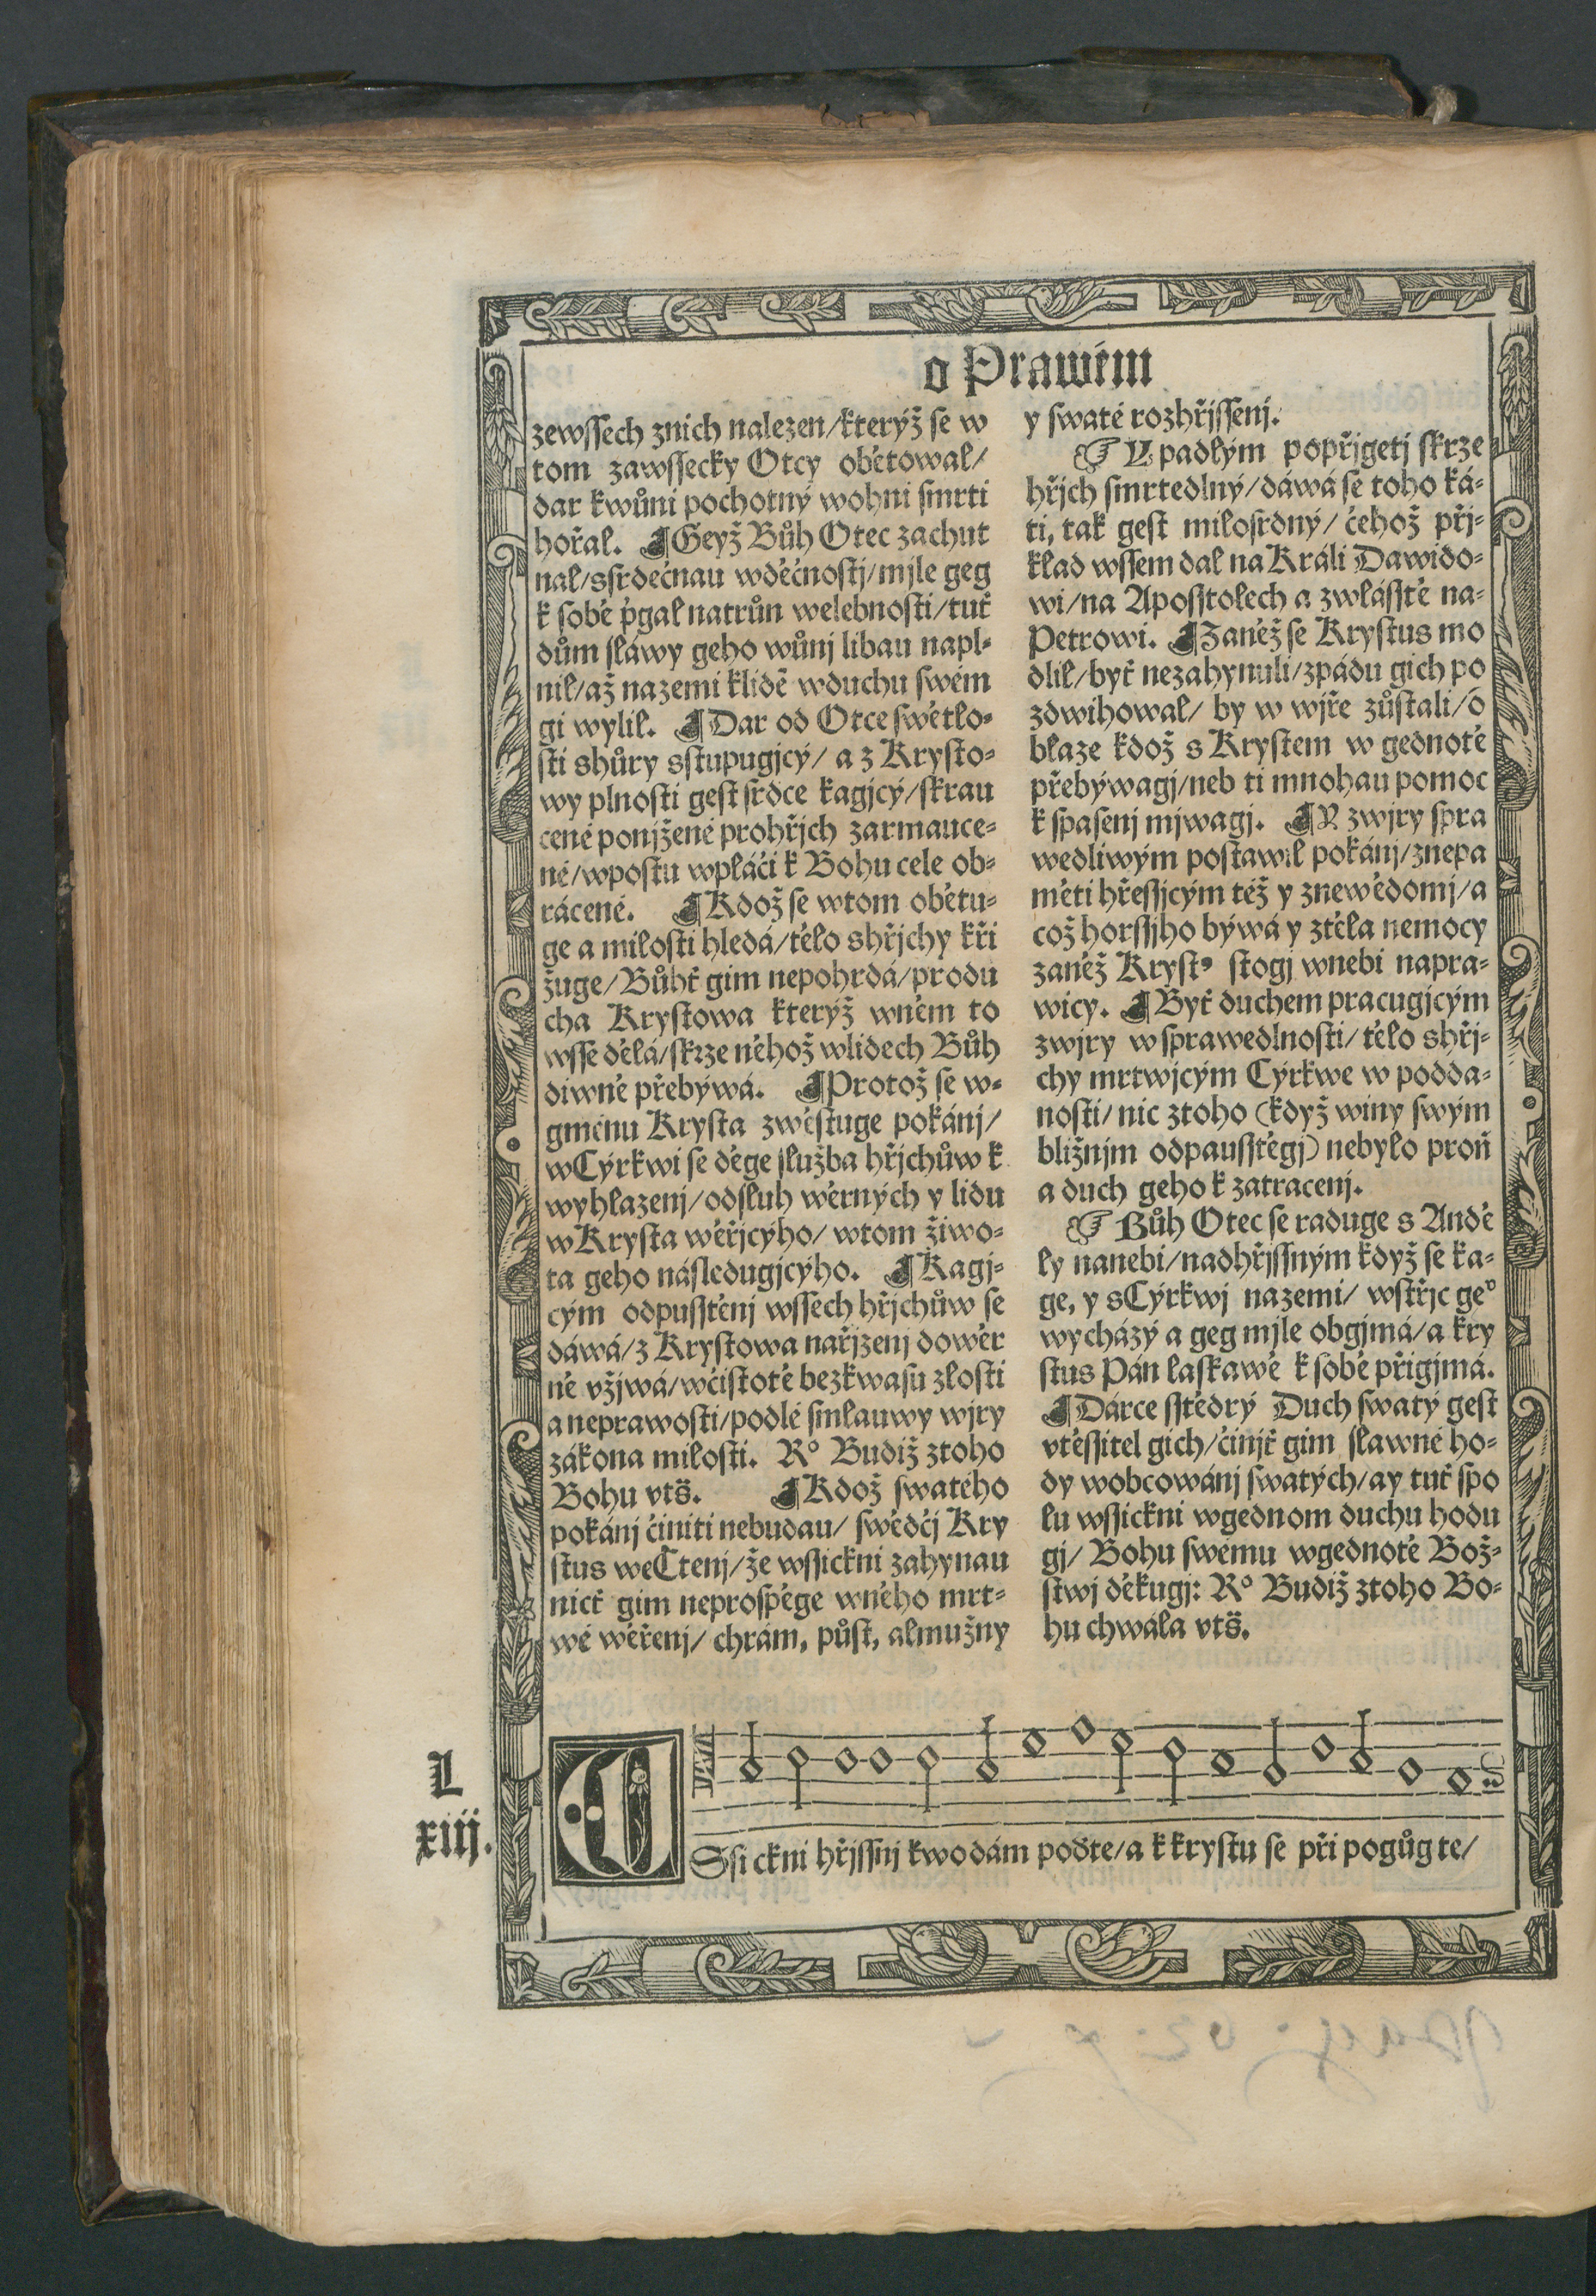 o Prawém
zewssech znich nalezen/kterýž se w
tom zawssecky Otcy obětowal/
dar kwůni pochotný wohni smrti
hořal. ¶Geyž Bůh Otec zachut
nal/ssrdečnau wděčnostj/mjle geg
k sobě p̌gal natrůn welebnosti/tuť
dům sláwy geho wůnj libau napl-
nil/až nazemi klidẽ wduchu swém
gi wylil. ¶Dar od Otce swětlo-
sti shůry sstupugjcý/ a z Krysto-
wy plnosti gest srdce kagjcý/skrau
cené ponjžené prohřjch zarmauce-
né/wpostu wpláči k Bohu cele ob-
rácené. ¶Kdož se wtom obětu-
ge a milosti hledá/tělo shřjchy kři
žuge/Bůhť gim nepohrdá/produ
cha Krystowa kterýž wněm to
wsse dělá/skrze něhož wlidech Bůh
diwně přebýwá. ¶Protož se w-
gménu Krysta zwěstuge pokánj/
wCýrkwi se děge služba hřjchůw k
wyhlazenj/odsluh wěrných y lidu
wKrysta wěřjcýho/ wtom žiwo-
ta geho následugjcýho. ¶Kagj-
cým odpusstěnj wssech hřjchůw se
dáwá/z Krystowa nařjzenj dowěr
ně vžjwá/wčistotě bezkwasu zlosti
a neprawosti/podlé smlauwy wjry
zákona milosti. R° Budiž ztoho
Bohu vts̈. ¶Kdož swatého
pokánj činiti nebudau/ swědčj Kry
stus weCtenj/že wssickni zahynau
nicť gim neprospěge wného mrt-
wé wěřenj/ chrám, půst, almužny
y swaté rozhřjssenj.
☞ Vpadlým popřjgetj skrze
hřjch smrtedlný/dáwá se toho ká-
ti, tak gest milosrdný/ čehož přj-
klad wssem dal na Králi Dawido-
wi/na Aposstolech a zwlásstě na-
Petrowi. ¶Zaněž se Krystus mo
dlil/byť nezahynuli/zpádu gich po
zdwihowal/ by w wjře zůstali/ó
blaze kdož s Krystem w gednotě
přebýwagj/neb ti mnohau pomoc
k spasenj mjwagj. ¶R zwjry spra
wedliwým postawil pokánj/znepa
měti hřessjcým též y znewědomj/a
což horssjho býwá y ztěla nemocy
zaněž Krystꝰ stogj wnebi napra-
wicy. ¶Byť duchem pracugjcým
zwjry w sprawedlnosti/ tělo shřj-
chy mrtwjcým Cýrkwe w podda-
nosti/ nic ztoho (když winy swým
bližnjm odpausstěgj) nebylo proň
a duch geho k zatracenj.
☞ Bůh Otec se raduge s Andě
ly nanebi/nadhřjssným když se ka-
ge, y sCýrkwj nazemi/ wstřjc geº
wycházý a geg mjle obgjmá/a kry
stus Pán laskawě k sobě přigjmá.
¶Dárce sstědrý Duch swatý gest
vtěssitel gich/činjť gim slawné ho-
dy wobcowánj swatých/ay tuť spo
lu wssickni wgednom duchu hodu
gj/ Bohu swému wgednotě Bož-
stwj děkugj: R° Budiž ztoho Bo-
hu chwála vts̈.
L
xiij.
WSsi ckni hřjssnj kwodám poďte/a k krystu se při pogůg te/